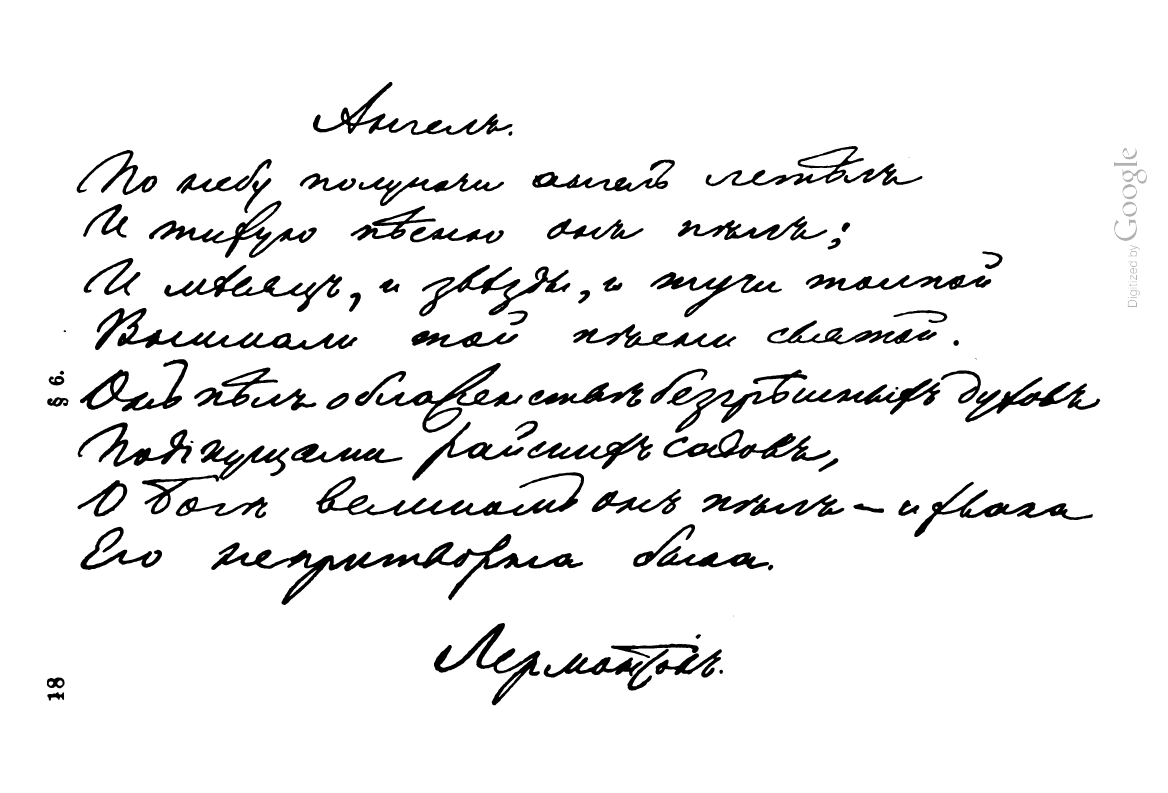 Ангелъ.
По небу полуночи ангелъ летѣлъ
И тихую пѣсню онъ пѣлъ;
И мѣсяцъ, и звѣзды, и тучи толпой
Внимали той пѣсни святой.
§ 6.
Онъ пѣлъ о блаженствѣ безгрѣшныхъ духовъ
Подъ кущами райскихъ садовъ,
О Богѣ великомъ онъ пѣлъ — и хвала
Его непритворна была.
Лермонтовъ.
18
Digitized by Google